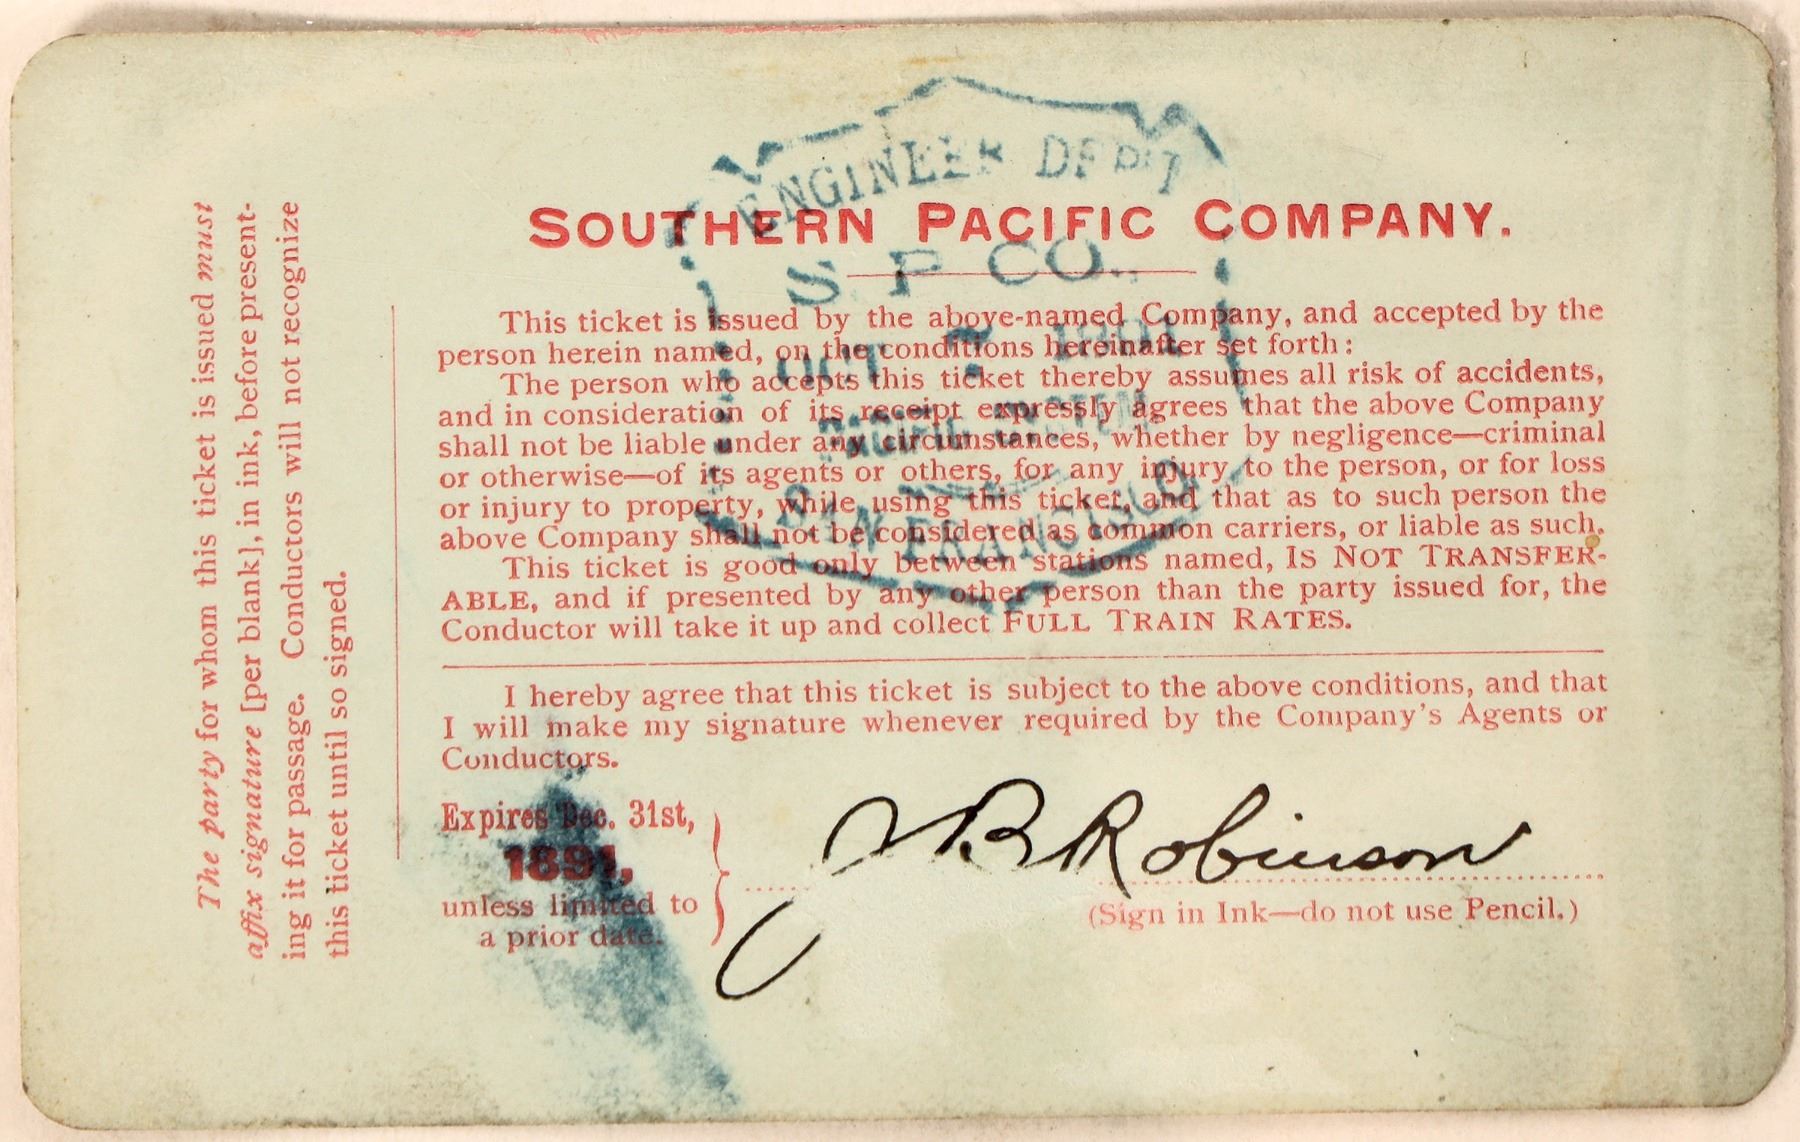 The party for whom this ticket is issued must
affix signature [per blank], in ink, before present-
ing it for passage. Conductors will not recognize
this ticket until so signed.
SOUTHERN PACIFIC COMPANY.
This ticket is issued by the above-named Company, and accepted by the
person herein named, on the conditions hereinafter set forth:
The person who accepts this ticket thereby assumes all risk of accidents,
and in consideration of its receipt expressly agrees that the above Company
shall not be liable under any circumstances, whether by negligence—criminal
or otherwise—of its agents or others, for any injury to the person, or for loss
or injury to property, while using this ticket, and that as to such person the
above Company shall not be considered as common carriers, or liable as such.
This ticket is good only between stations named, IS NOT TRANSFER-
ABLE, and if presented by any other person than the party issued for, the
Conductor will take it up and collect FULL TRAIN RATES.
I hereby agree that this ticket is subject to the above conditions, and that
I will make my signature whenever required by the Company's Agents or
Conductors.
Expires Dec. 31st,
1891,
unless limited to
a prior date.
J B Robinson
(Sign in Ink—do not use Pencil.)
ENGINEER DEP'T
S P CO.,
OCT 7 1891
PACIFIC SYSTEM
SAN FRANCISCO